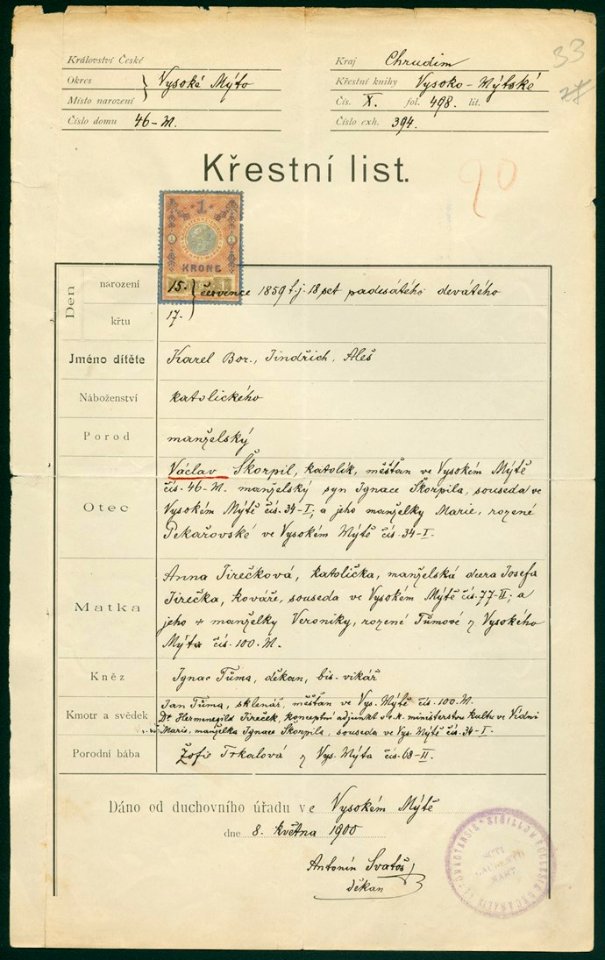 Království České
Okres
Místo narození
Vysoké Mýto
Číslo domu 46-M.
Kraj Chrudim
Křestní knihy Vysoko-Mýtské
Čís. X. fol. 498. lit.
Číslo exh. 394.
33
Křestní list.
90
1
KRONE
Den
narození 15. července 1859 t.j. 18 set padesátého devátého
křtu 17.
Jméno dítěte Karel Bor., Jindřich, Aleš
Náboženství katolického
Porod manželský
Otec
Václav Škorpil, katolík, měšťan ve Vysokém Mýtě
čís. 46-M. manželský syn Ignace Škorpila, souseda ve
Vysokém Mýtě čís. 34-I; a jeho manželky Marie, rozené
Pekařovské ve Vysokém Mýtě čís. 34-I.
Matka
Anna Jirečková, katolička, manželská dcera Josefa
Jirečka, kováře, souseda ve Vysokém Mýtě čís. 77-II; a
jeho + manželky Veroniky, rozené Tůmové z Vysokého
Mýta čís. 100-M.
Kněz Ignac Tůma, děkan, bis. vikář
Kmotr a svědek
Jan Tůma, sklenář, měšťan ve Vys. Mýtě čís. 100-M.
Dr Hermenegild Jireček, konceptní adjunkt c. k. ministerstva kultu ve Vídni
Marie, manželka Ignace Škorpila, souseda ve Vys. Mýtě čís. 34-I.
Porodní bába Žofie Trkalová z Vys. Mýta čís. 63-II.
Dáno od duchovního úřadu ve Vysokém Mýtě
dne 8. května 1900
Antonín Svatoš
děkan